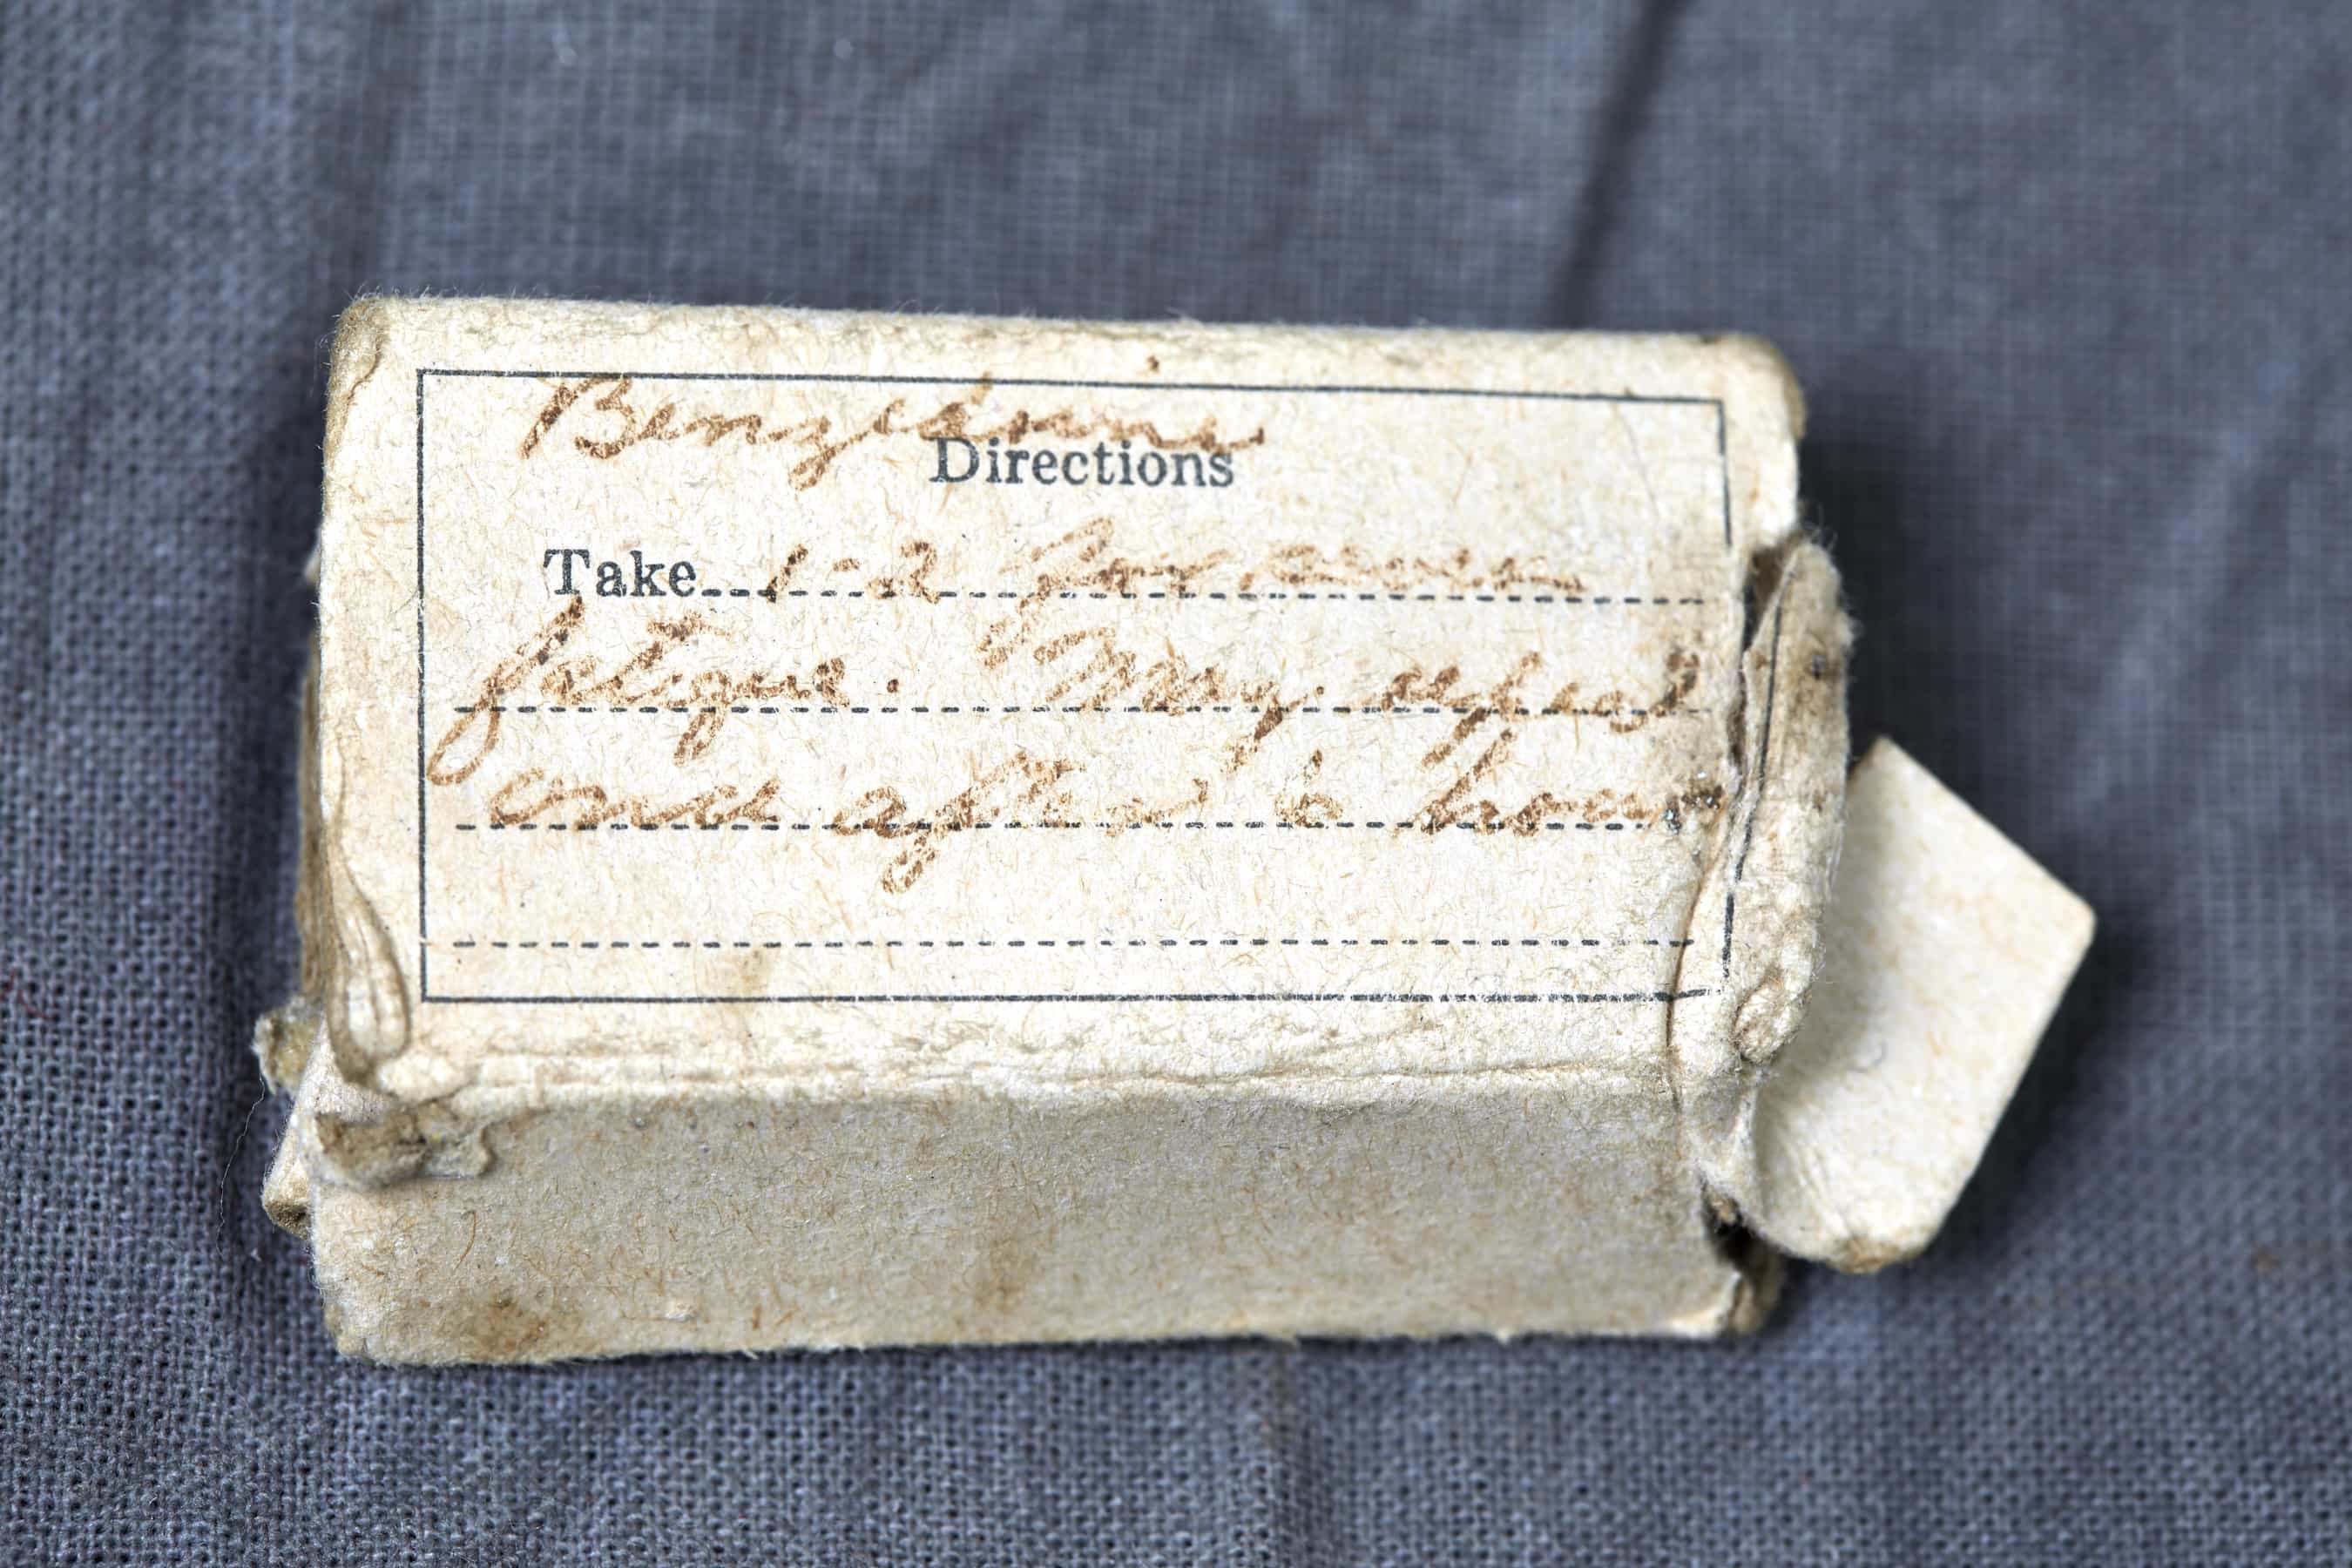 Benzedrine
Directions
Take 1-2 for severe
fatigue. May repeat
once after 6 hours